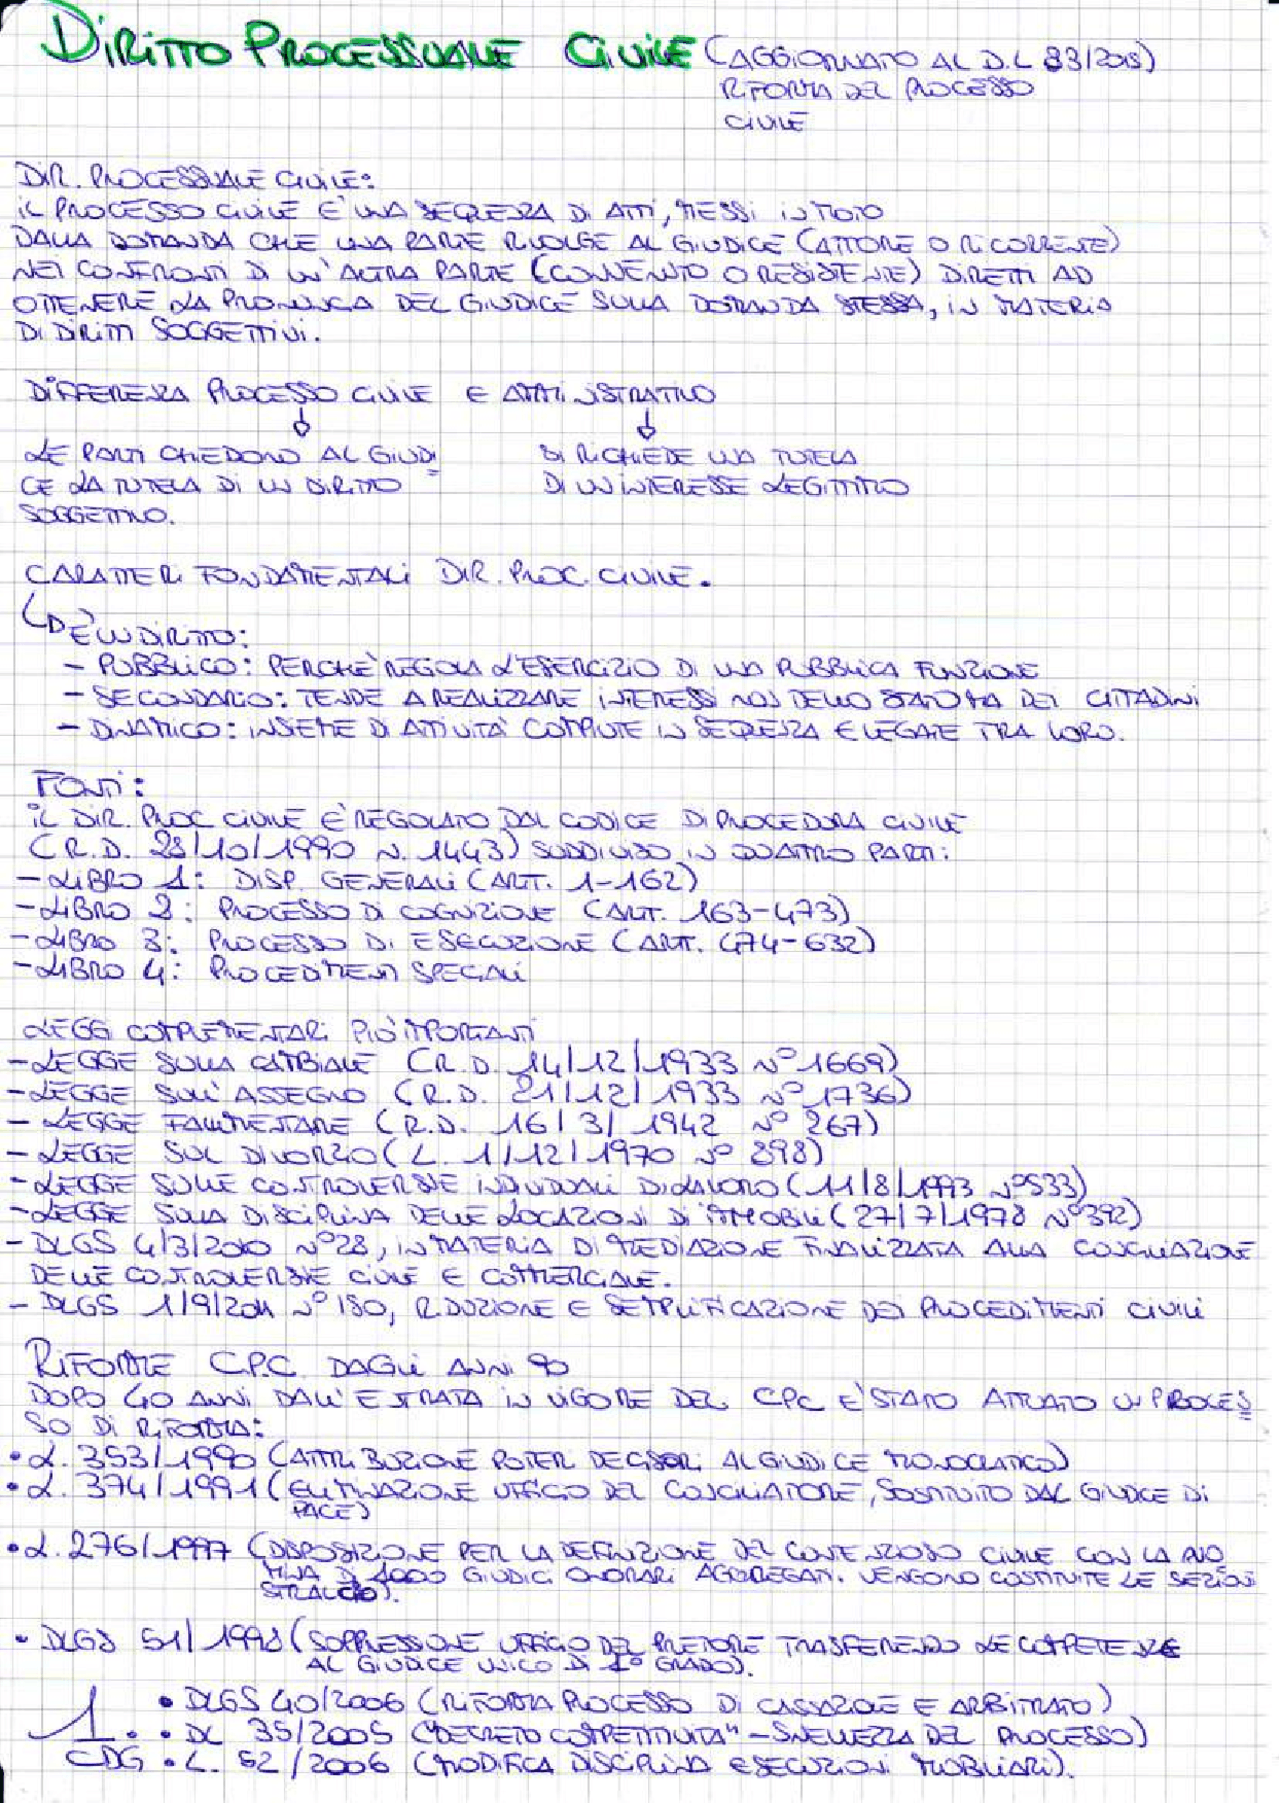 DIRITTO PROCESSUALE CIVILE (AGGIORNATO AL D.L 83/2015)
RIFORMA DEL PROCESSO
CIVILE
DIR. PROCESSUALE CIVILE:
IL PROCESSO CIVILE E' UNA SEQUENZA DI ATTI, MESSI IN MOTO
DALLA DOMANDA CHE UNA PARTE RIVOLGE AL GIUDICE (ATTORE O RICORRENTE)
NEI CONFRONTI DI UN'ALTRA PARTE (CONVENUTO O RESISTENTE) DIRETTI AD
OTTENERE LA PRONUNCIA DEL GIUDICE SULLA DOMANDA STESSA, IN MATERIA
DI DIRITTI SOGGETTIVI.
DIFFERENZA PROCESSO CIVILE E AMMINISTRATIVO
LE PARTI CHIEDONO AL GIUDI SI RICHIEDE UNA TUTELA
CE LA TUTELA DI UN DIRITTO DI UN INTERESSE LEGITTIMO
SOGGETTIVO.
CARATTERI FONDAMENTALI DIR. PROC. CIVILE.
E' UN DIRITTO:
- PUBBLICO: PERCHE' REGOLA L'ESERCIZIO DI UNA PUBBLICA FUNZIONE
- SECONDARIO: TENDE A REALIZZARE INTERESSI NON DELLO STATO MA DEI CITTADINI
- DINAMICO: INSIEME DI ATTIVITA' COMPIUTE IN SEQUENZA E LEGATE TRA LORO.
FONTI:
IL DIR. PROC CIVILE E' REGOLATO DAL CODICE DI PROCEDURA CIVILE
(R.D. 28/10/1990 N. 1443) SUDDIVISO IN QUATTRO PARTI:
- LIBRO 1: DISP. GENERALI (ARTT. 1-162)
- LIBRO 2: PROCESSO DI COGNIZIONE (ARTT. 163-473)
- LIBRO 3: PROCESSO DI ESECUZIONE (ARTT. 474-632)
- LIBRO 4: PROCEDIMENTI SPECIALI
LEGGI COMPLEMENTARI PIU' IMPORTANTI
- LEGGE SULLA CAMBIALE (R.D. 14/12/1933 N° 1669)
- LEGGE SULL'ASSEGNO (R.D. 21/12/1933 N° 1736)
- LEGGE FALLIMENTARE (R.D. 16/3/1942 N° 267)
- LEGGE SUL DIVORZIO (L. 1/12/1970 N° 898)
- LEGGE SULLE CONTROVERSIE INDIVIDUALI DI LAVORO (11/8/1993 N° 533)
- LEGGE SULLA DISCIPLINA DELLE LOCAZIONI DI IMMOBILI (27/7/1978 N° 392)
- DLGS 4/3/2010 N° 28, IN MATERIA DI MEDIAZIONE FINALIZZATA ALLA CONCILIAZIONE
DELLE CONTROVERSIE CIVILE E COMMERCIALE.
- DLGS 1/9/2011 N° 150, RIDUZIONE E SEMPLIFICAZIONE DEI PROCEDIMENTI CIVILI
RIFORME C.P.C. DAGLI ANNI 90
DOPO 40 ANNI DALL'ENTRATA IN VIGORE DEL CPC E' STATO ATTUATO UN PROCES
SO DI RIFORMA:
• L. 353/1990 (ATTRIBUZIONE POTERI DECISORI AL GIUDICE MONOCRATICO)
• L. 374/1991 (ELIMINAZIONE UFFICIO DEL CONCILIATORE, SOSTITUITO DAL GIUDICE DI
PACE)
• L. 276/1997 (DISPOSIZIONE PER LA DEFINIZIONE DEL CONTENZIOSO CIVILE CON LA NO
MINA DI 1000 GIUDICI ONORARI AGGREGATI. VENGONO COSTITUITE LE SEZIONI
STRALCIO).
• DLGS 51/1998 (SOPPRESSIONE UFFICIO DEL PRETORE TRASFERENDO LE COMPETENZE
AL GIUDICE UNICO DI 1° GRADO).
• DLGS 40/2006 (RIFORMA PROCESSO DI CASSAZIONE E ARBITRATO)
1. • DL 35/2005 ("DECRETO COMPETITIVITA" - SNELLEZZA DEL PROCESSO)
CDG • L. 52/2006 (MODIFICA DISCIPLINA ESECUZIONI MOBILIARI).